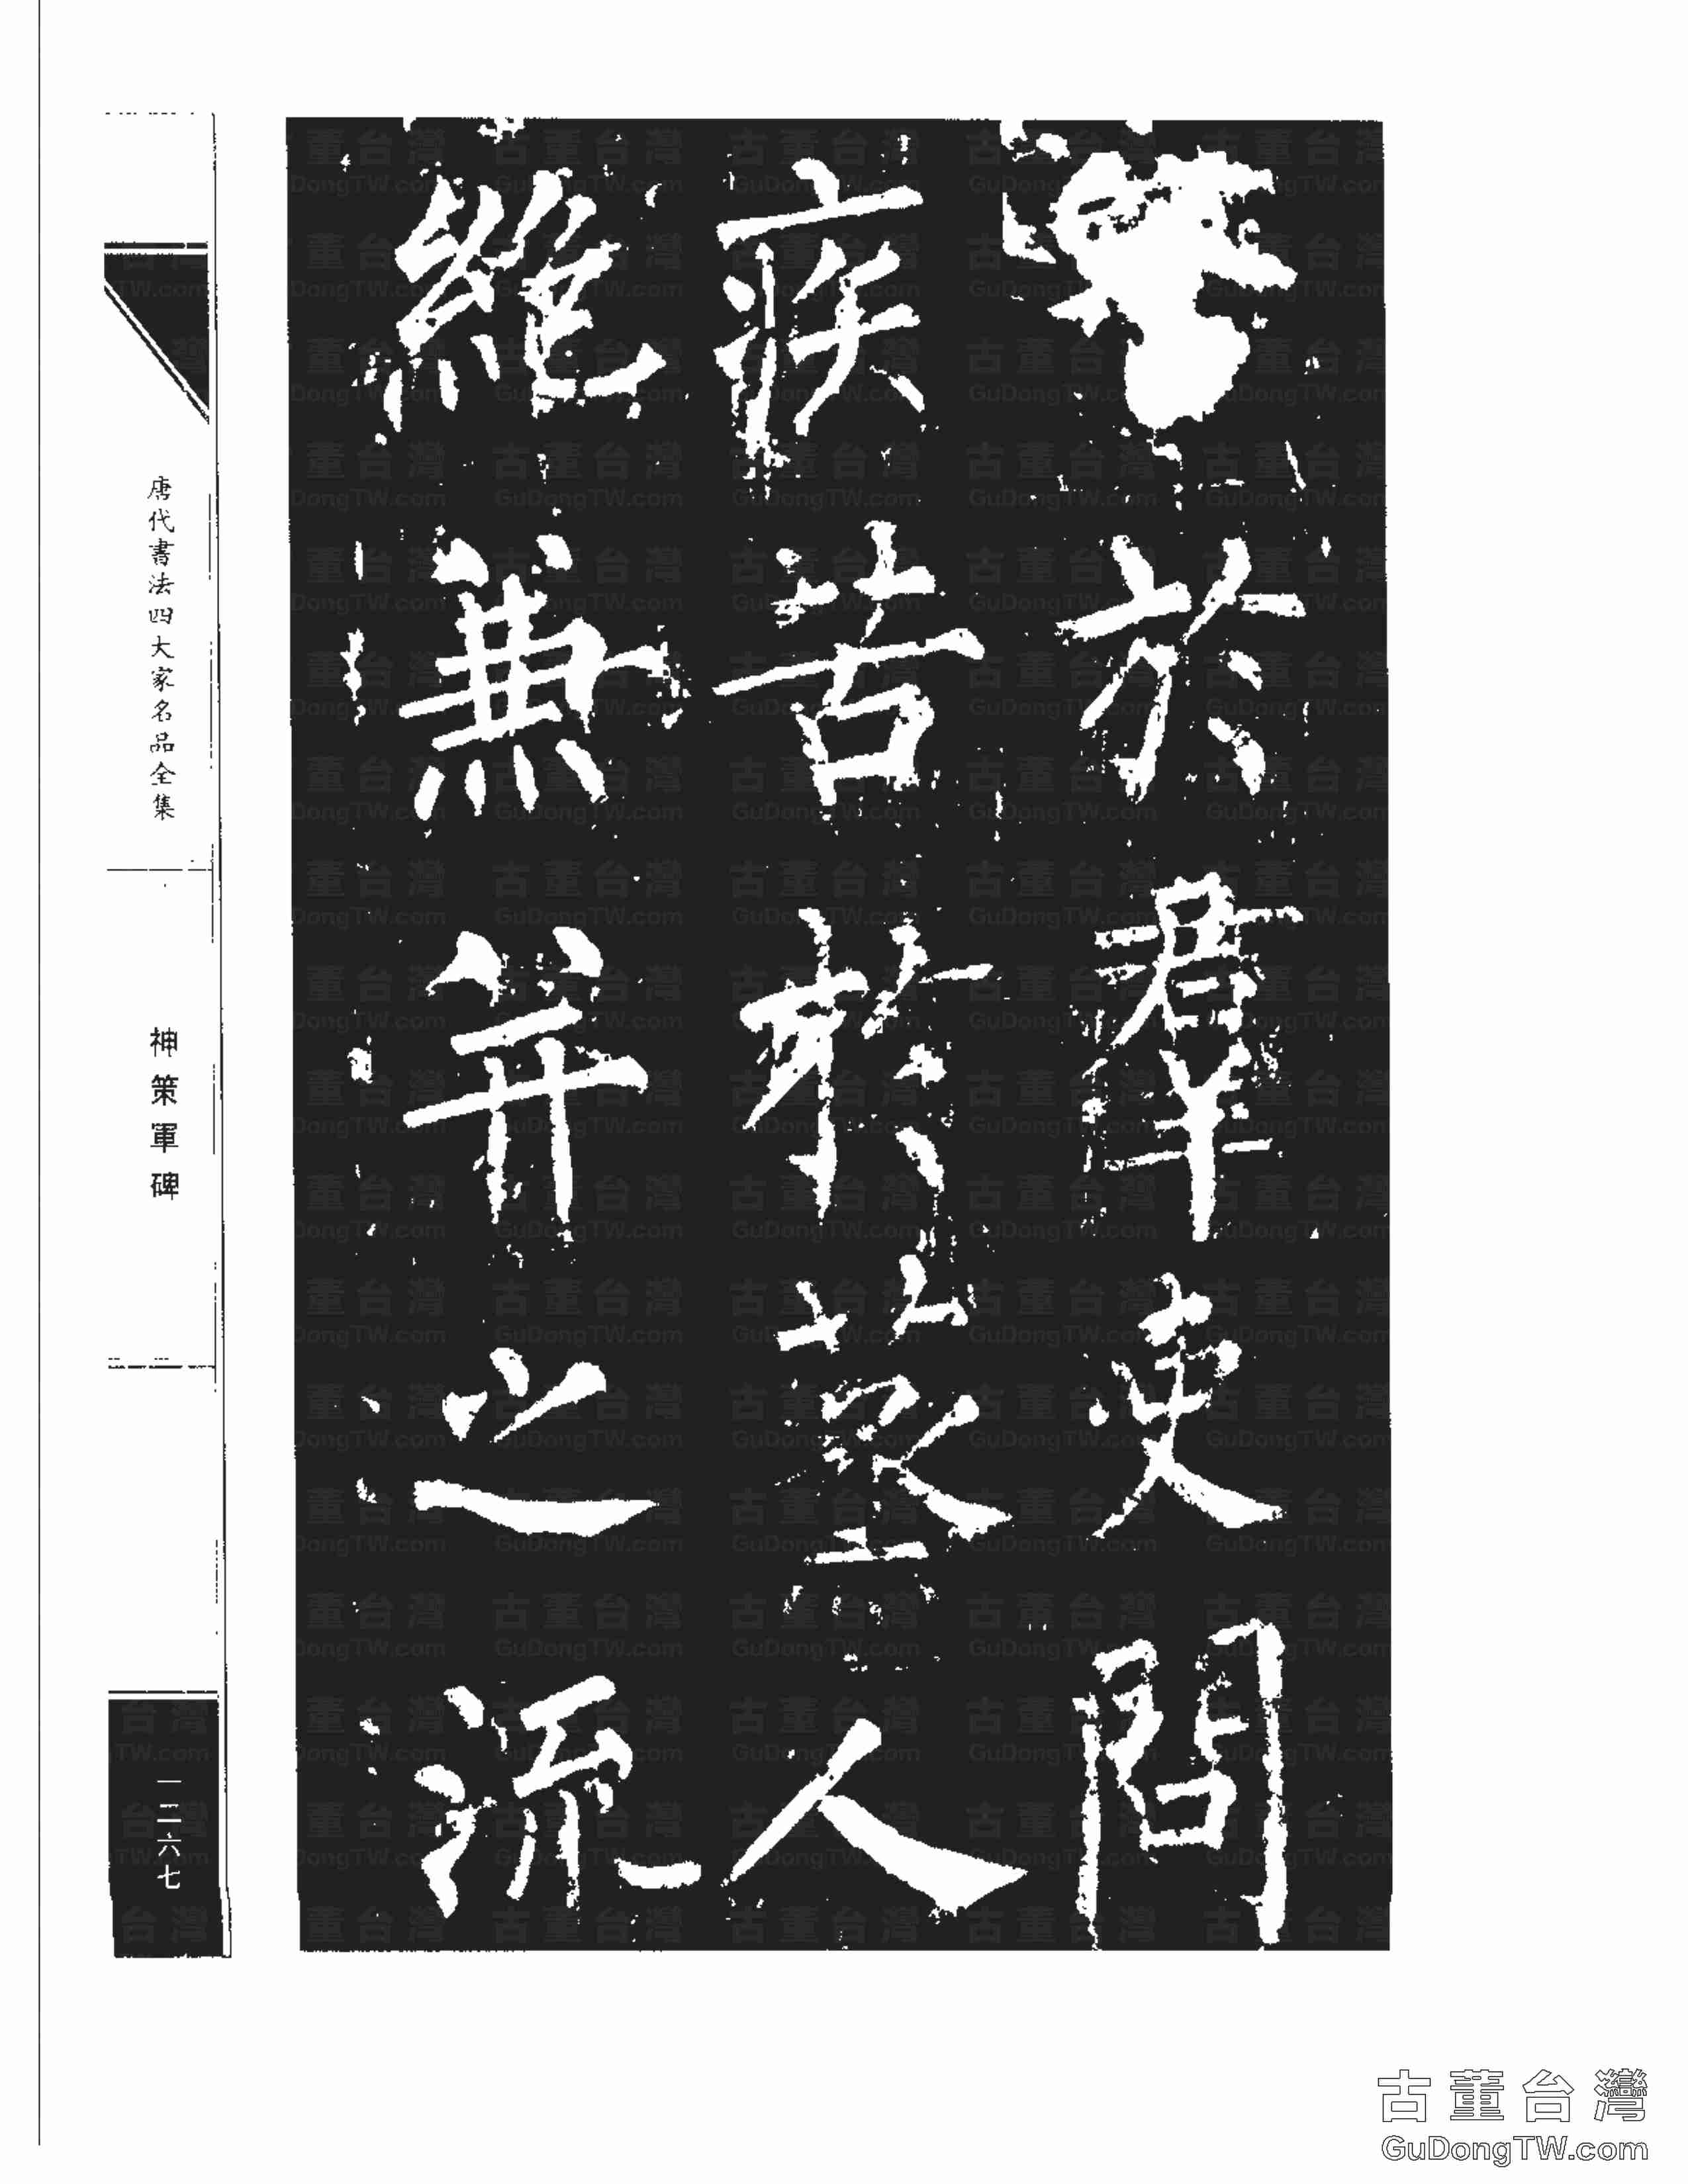 於群吏問
疾苦於蒸人
絕兼并之流
唐代書法四大家名品全集
神策軍碑
一二六七
古董台灣
GuDongTW.com